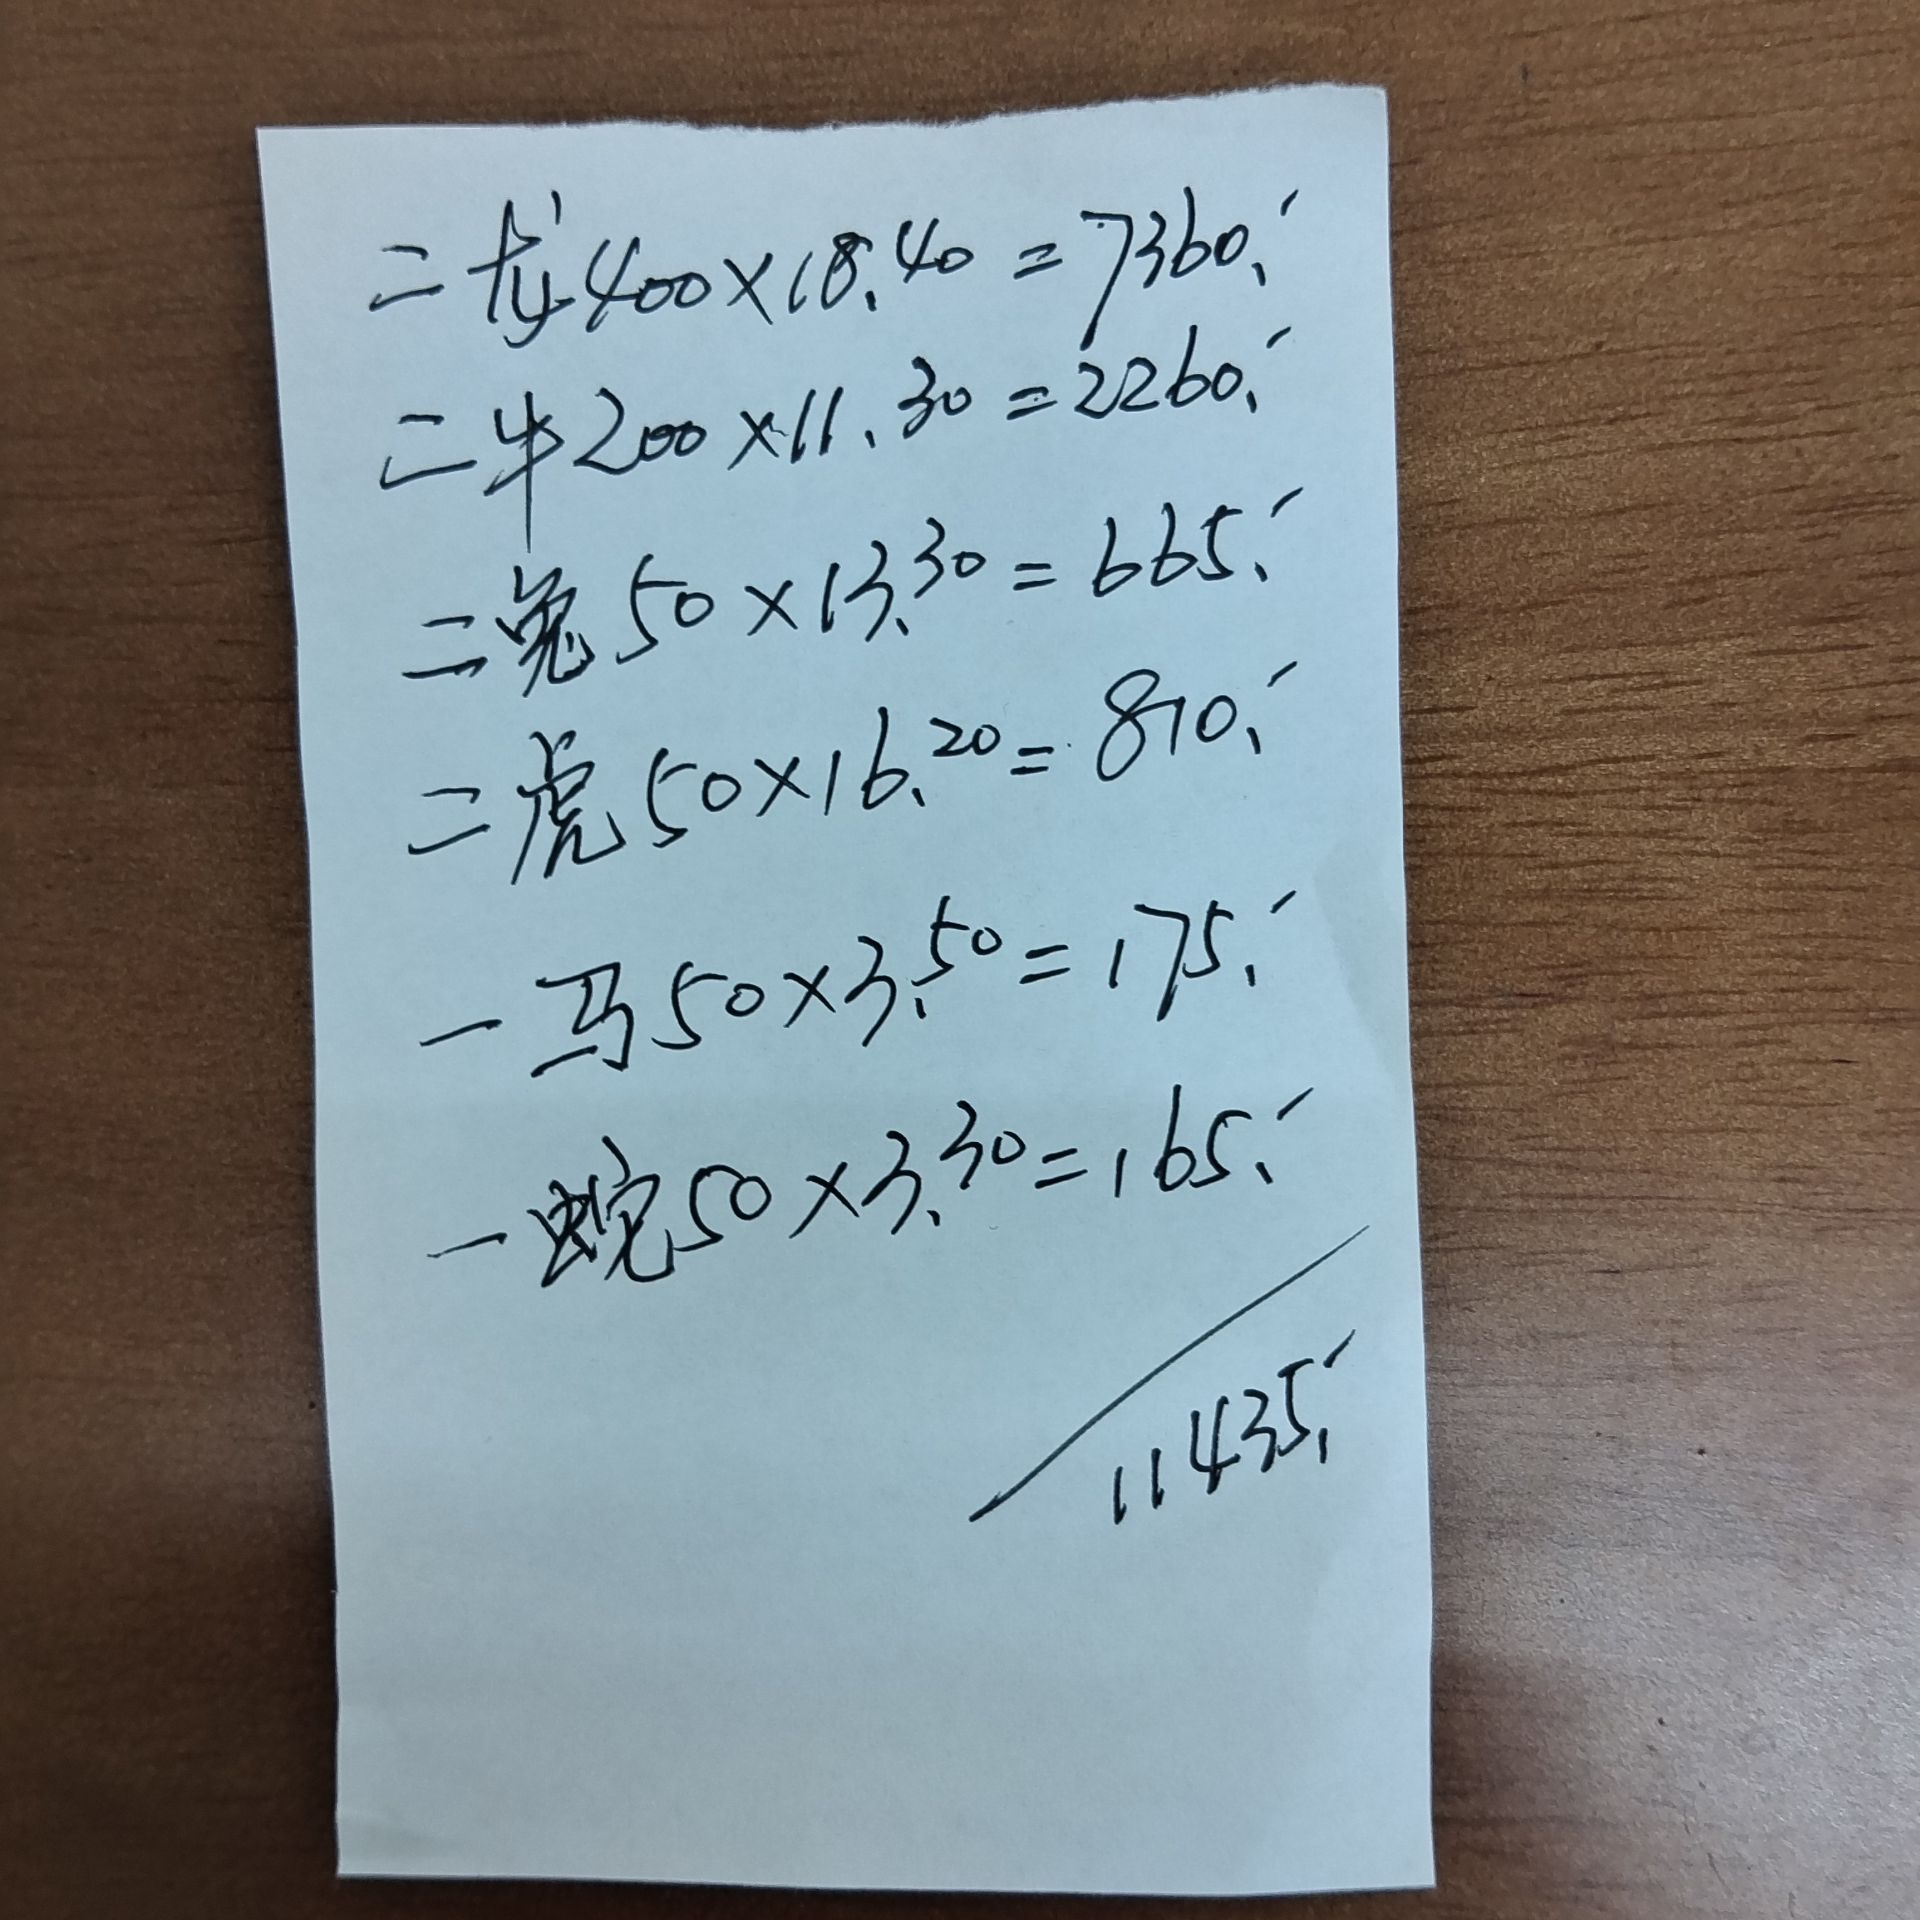 二龙400×18.40=7360.
二牛200×11.30=2260.
二兔50×13.30=665.
二虎50×16.20=810.
一马50×3.50=175.
一蛇50×3.30=165.
11435.